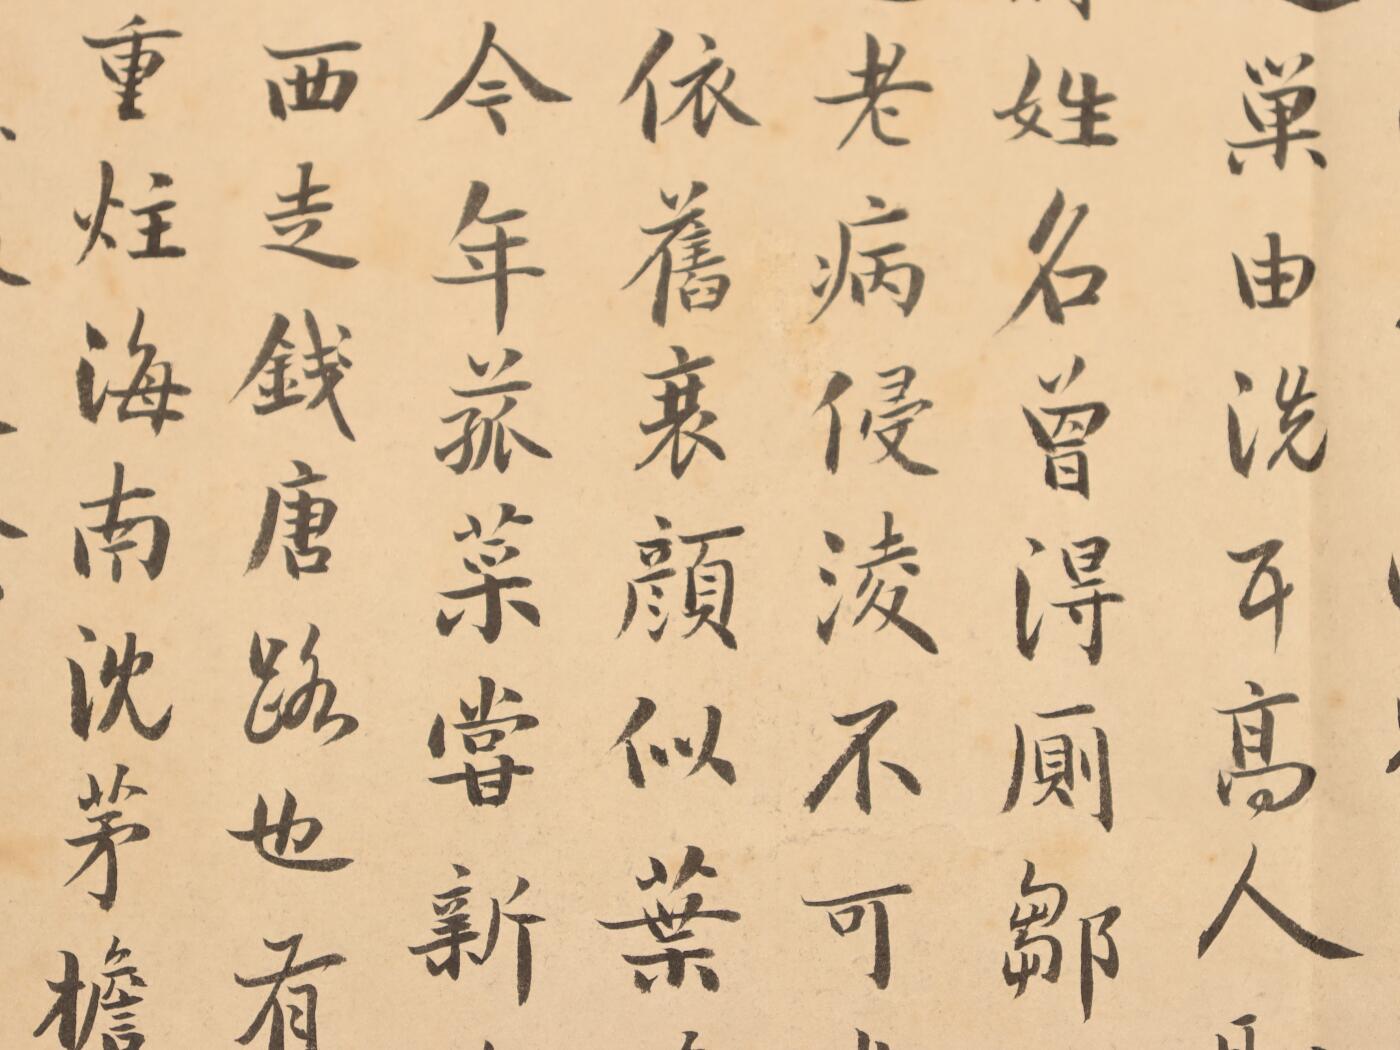 巢由洗耳高人
姓名曾得厠鄒
老病侵凌不可
依舊衰顔似葉
今年菰菜嘗新
西走錢唐路也有
重炷海南沈茅檐